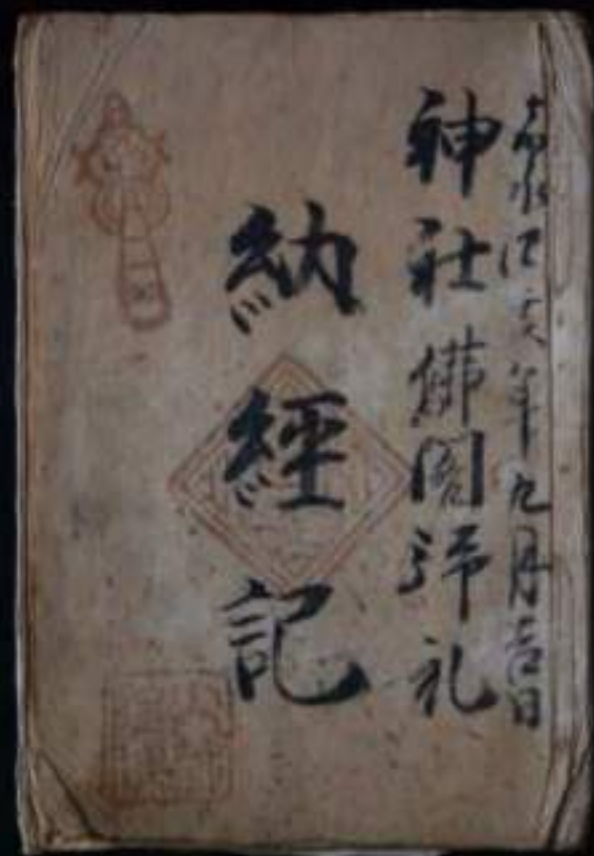 嘉永四亥年九月吉日
神社佛閣拝礼
納經記